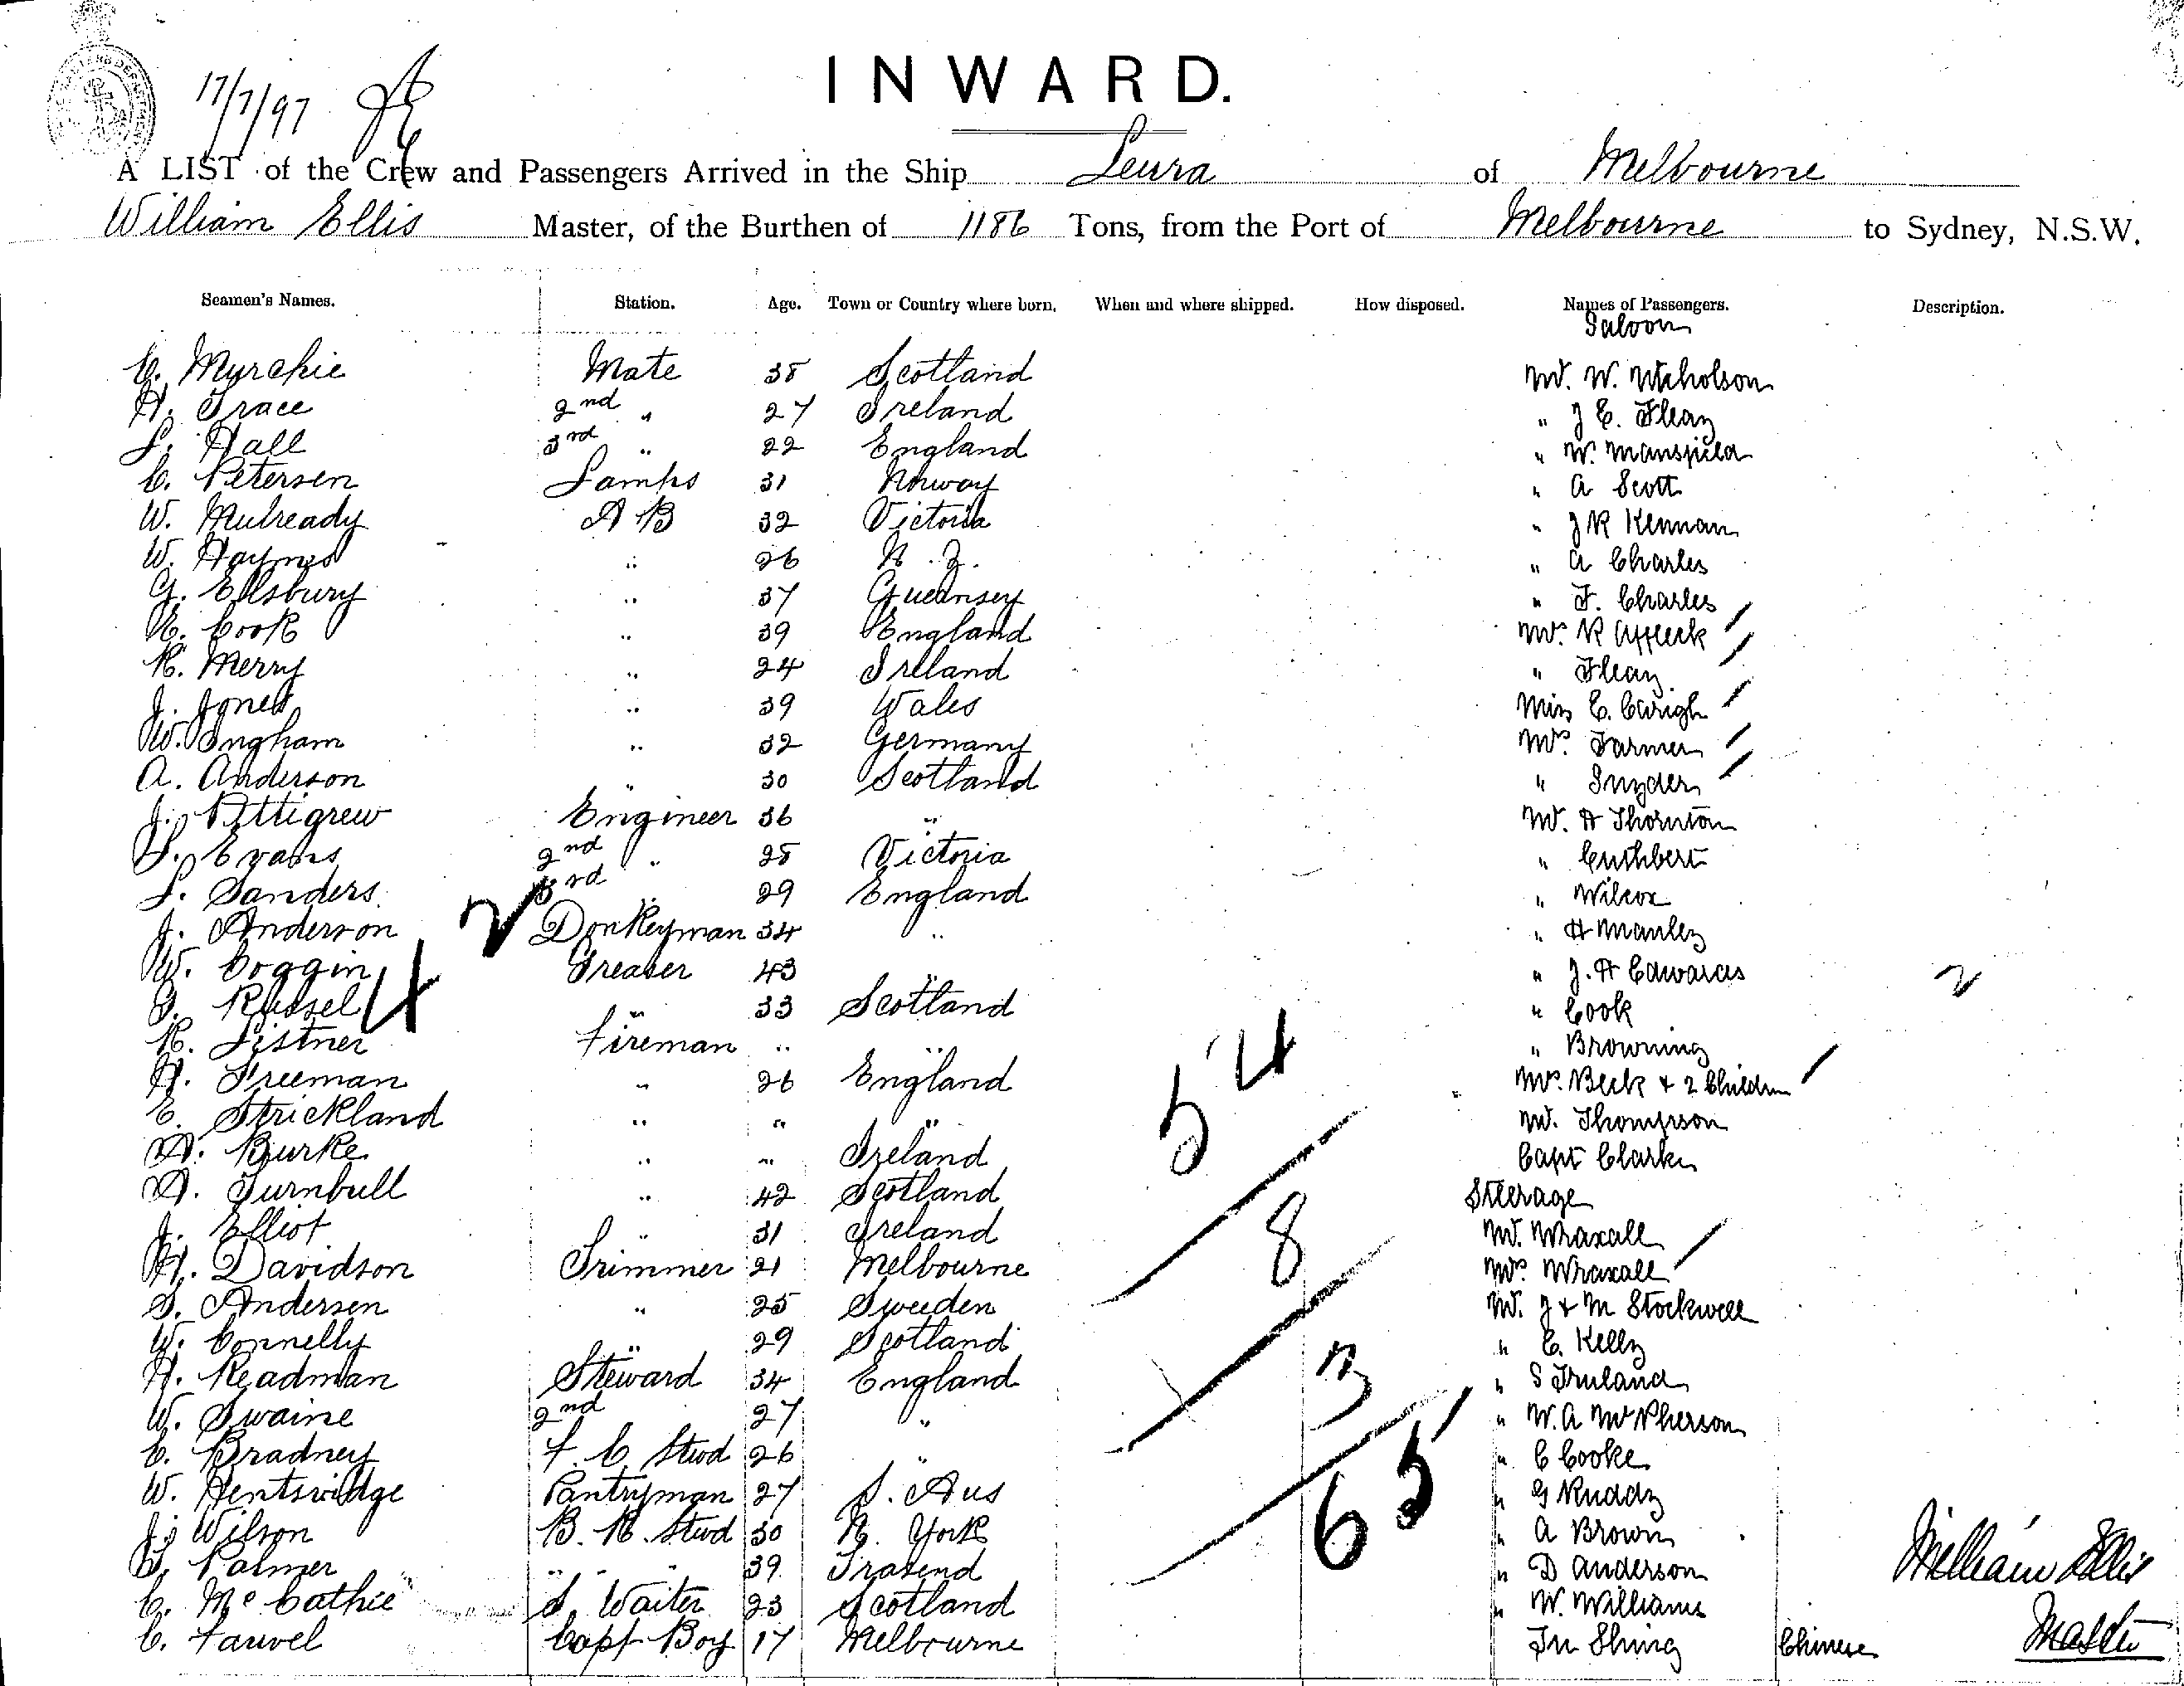 INWARD.
17/7/97
A LIST of the Crew and Passengers Arrived in the Ship Leura of Melbourne
William Ellis Master, of the Burthen of 1186 Tons, from the Port of Melbourne to Sydney, N.S.W.
Seamen's Names. Station. Age. Town or Country where born. When and where shipped. How disposed. Names of Passengers. Description.
Saloon
C. Myrchie Mate 38 Scotland Mr. W. Nicholson
H. Grace 2nd " 27 Ireland " J E. Fleay
L. Hall 3rd " 22 England " W. Mansfield
C. Petersen Lamps 31 Norway " A Scott
W. Mulready A B 32 Victoria " J R Kennan
W. Haymes " 26 N. Z. " A Charles
G. Ellsbury " 37 Guernsey " F. Charles
E. Cook " 39 England Mrs. R Affleck
R. Merry " 24 Ireland " Fleay
J. Jones " 39 Wales Miss E. Carigh
W. Ingham " 32 Germany Mrs. Farmer
A. Anderson " 30 Scotland " Snyder
J. Pettigrew Engineer 36 " Mr. H Thornton
Evans 2nd " 28 Victoria " Cuthbert
L. Sanders 3rd " 29 England " Wilcox
J. Anderson Donkeyman 34 " " H Manley
W. Coggin Greaser 43 " " J. H Edwards 2
Russel " 33 Scotland " Cook
R. Listner Fireman " " " Browning
H. Freeman " 26 England Mrs. Beck + 2 Children
E. Strickland " " " Mr. Thompson
Burke " " Ireland Capt Clarke
Turnbull " 42 Scotland Steerage
J. Elliot " 31 Ireland Mr. Wraxall
H. Davidson Trimmer 21 Melbourne Mrs Wraxall
S. Andersen " 25 Sweden Mr. J + M Stockwell
W. Connelly " 29 Scotland " E. Kelly
H. Readman Steward 34 England " S Iruland
W. Swaine 2nd " 27 " " W. A McPherson
C. Bradney F. C Stwd 26 " " C Cooke
W. Hentswidge Pantryman 27 S. Aus " G Ruddy
J. Wilson B. R. Stwd 30 N. York " A Brown
Palmer " " 39 Gravend " D Anderson
C. McCathie S. Waiter 23 Scotland " W. Williams
C. Fauvel Capt Boy 17 Melbourne In Shing Chinese
2
4
54
8
3
65
William Ellis
Master